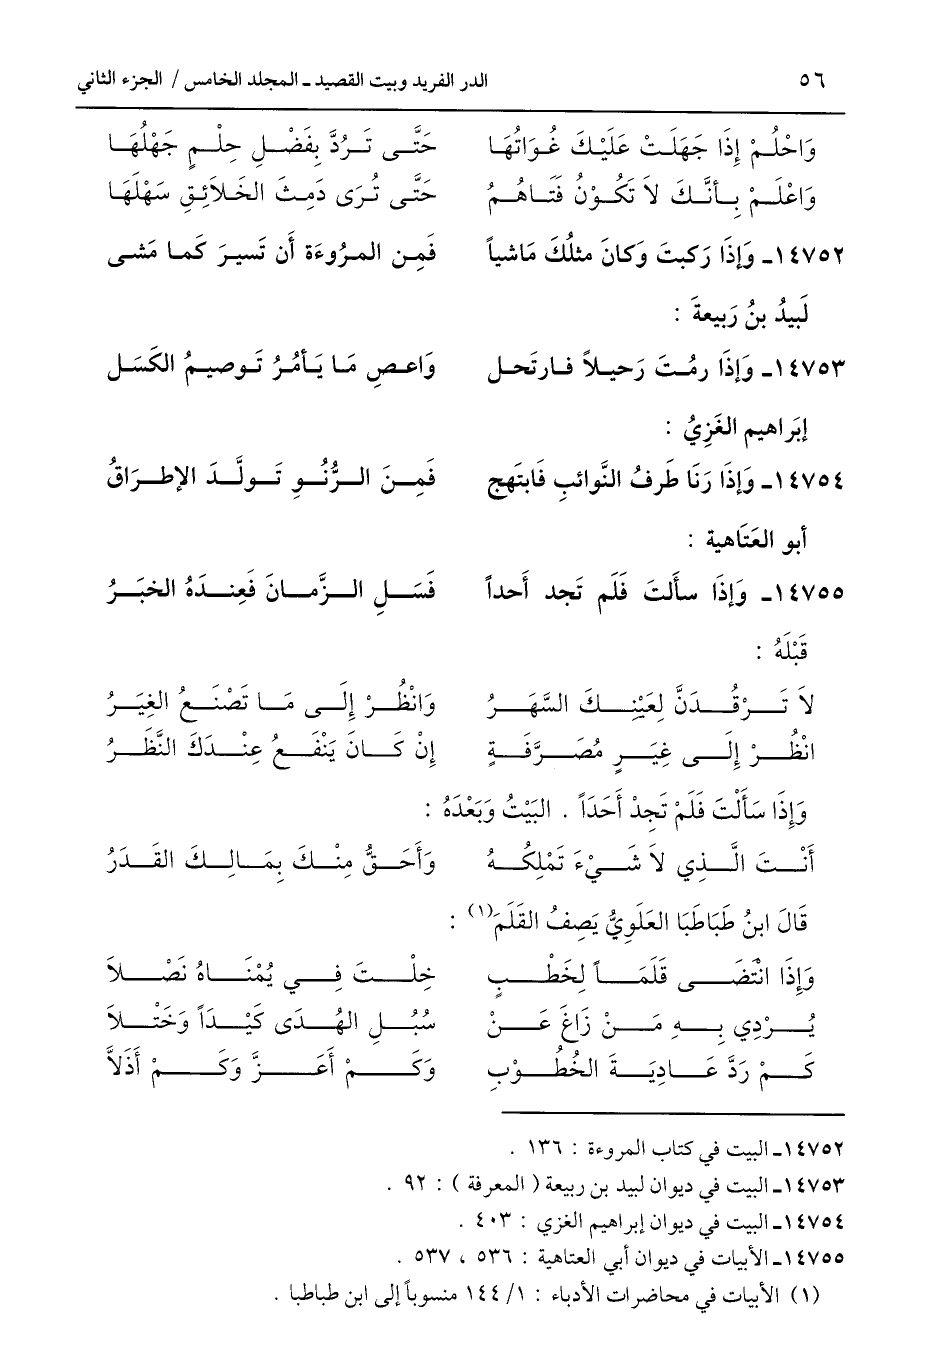 ٥٦ الدر الفريد وبيت القصيد ـ المجلد الخامس / الجزء الثاني
وَاحْلُمْ إِذَا جَهَلَتْ عَلَيْكَ غُوَاتُهَا حَتَّى تَرُدَّ بِفَضْلِ حِلْمٍ جَهْلُهَا
وَاعْلَمْ بِأَنَّكَ لاَ تَكُوْنُ فَتَاهُمُ حَتَّى تُرَى دَمِثَ الخَلاَئِقِ سَهْلَهَا
١٤٧٥٢ـ وَإِذَا رَكبتَ وَكانَ مثلُكَ مَاشياً فَمِن المرُوءَة أَن تَسيرَ كَما مَشى
لَبيدُ بنُ رَبيعةَ :
١٤٧٥٣ـ وَإِذَا رمُتَ رَحيلاً فارتَحل وَاعصِ مَا يَأمُرُ تَوصيمُ الكَسَل
إبَراهيم الغَزِيُ :
١٤٧٥٤ـ وَإِذَا رَنَا طَرفُ النَّوائبِ فَابتَهج فَمِنَ الرُّنُو تَولَّدَ الإطرَاقُ
أبو العَتَاهية :
١٤٧٥٥ـ وَإِذَا سألتَ فَلَم تَجد أَحداً فَسَلِ الزَّمانَ فَعِندَهُ الخبَرُ
قَبْلَهُ :
لاَ تَرْقُدَنَّ لِعَيْنِكَ السَّهَرُ وَانْظُرْ إِلَى مَا تَصْنَعُ الغِيَرُ
انْظُرْ إِلَى غِيَرٍ مُصَرَّفَةٍ إِنْ كَانَ يَنْفَعُ عِنْدَكَ النَّظَرُ
وَإِذَا سَأَلْتَ فَلَمْ تَجِدْ أَحَدَاً . البَيْتُ وَبَعْدَهُ :
أَنْتَ الَّذِي لاَ شَيْءَ تَمْلِكُهُ وَأَحَقُّ مِنْكَ بِمَالِكَ القَدَرُ
قَالَ ابنُ طَبَاطَبَا العَلَوِيُّ يَصِفُ القَلَمَ(١) :
وَإِذَا انْتَضَى قَلَمَاً لِخَطْبٍ خِلْتَ فِي يُمْنَاهُ نَصْلاَ
يُرْدِي بِهِ مَنْ زَاغَ عَنْ سُبُلِ الهُدَى كَيْدَاً وَخَتْلاَ
كَمْ رَدَّ عَادِيَةَ الخُطُوْبِ وَكَمْ أَعَزَّ وَكَمْ أَذَلاَّ
١٤٧٥٢ـ البيت في كتاب المروءة : ١٣٦ .
١٤٧٥٣ـ البيت في ديوان لبيد بن ربيعة ( المعرفة ) : ٩٢ .
١٤٧٥٤ـ البيت في ديوان إبراهيم الغزي : ٤٠٣ .
١٤٧٥٥ـ الأبيات في ديوان أبي العتاهية : ٥٣٦ ، ٥٣٧ .
(١) الأبيات في محاضرات الأدباء : ١/ ١٤٤ منسوباً إلى ابن طباطبا .